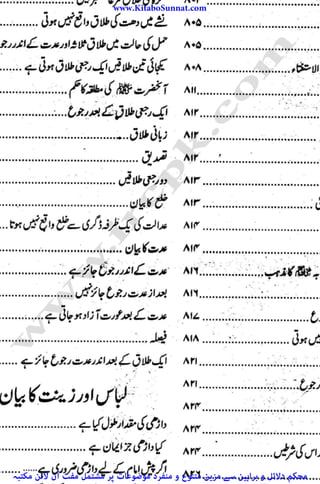 www.KitaboSunnat.com
نشے میں دھت کی طلاق واقع نہیں ہوتی ۸۰۵
حمل کی حالت میں طلاق ثلاثہ اور عدت کے اندر رجو ۸۰۵
یکجائی تین طلاقیں ایک رجعی طلاق ہوتی ہے ۸۰۸ الاستفتاء
آنحضرت ﷺ کی مطلقہ کا حکم ۸۱۱
ایک رجعی طلاق کے بعد رجوع ۸۱۲
زبانی طلاق ۸۱۲
تصدیق ۸۱۲
دو رجعی طلاقیں ۸۱۳
خلع کا بیان ۸۱۳
عدالت کی یک طرفہ ڈگری سے خلع واقع نہیں ہوتا ۸۱۴
عدت کا بیان ۸۱۴
عدت کے اندر رجوع جائز ہے ۸۱۶ ﷺ کا مذہب
بعد از عدت رجوع جائز نہیں
عدت کے بعد عورت آزاد ہو جاتی ہے ۸۱۷
فیصلہ ۸۱۸ ہوتی
ایک طلاق کے بعد اندر عدت رجوع جائز ہے ۸۲۱
لباس اور زینت کا بیان ۸۲۱ رجوع
داڑھی کی مقدار طول کیا ہے ۸۲۴
کیا داڑھی جز ایمان ہے ۸۲۴ کی شرطیں
اگر پیش امام کے لیے داڑھی ضروری ہے
محکم دلائل و براہین سے مزین متنوع و منفرد موضوعات پر مشتمل مفت آن لائن مکتبہ